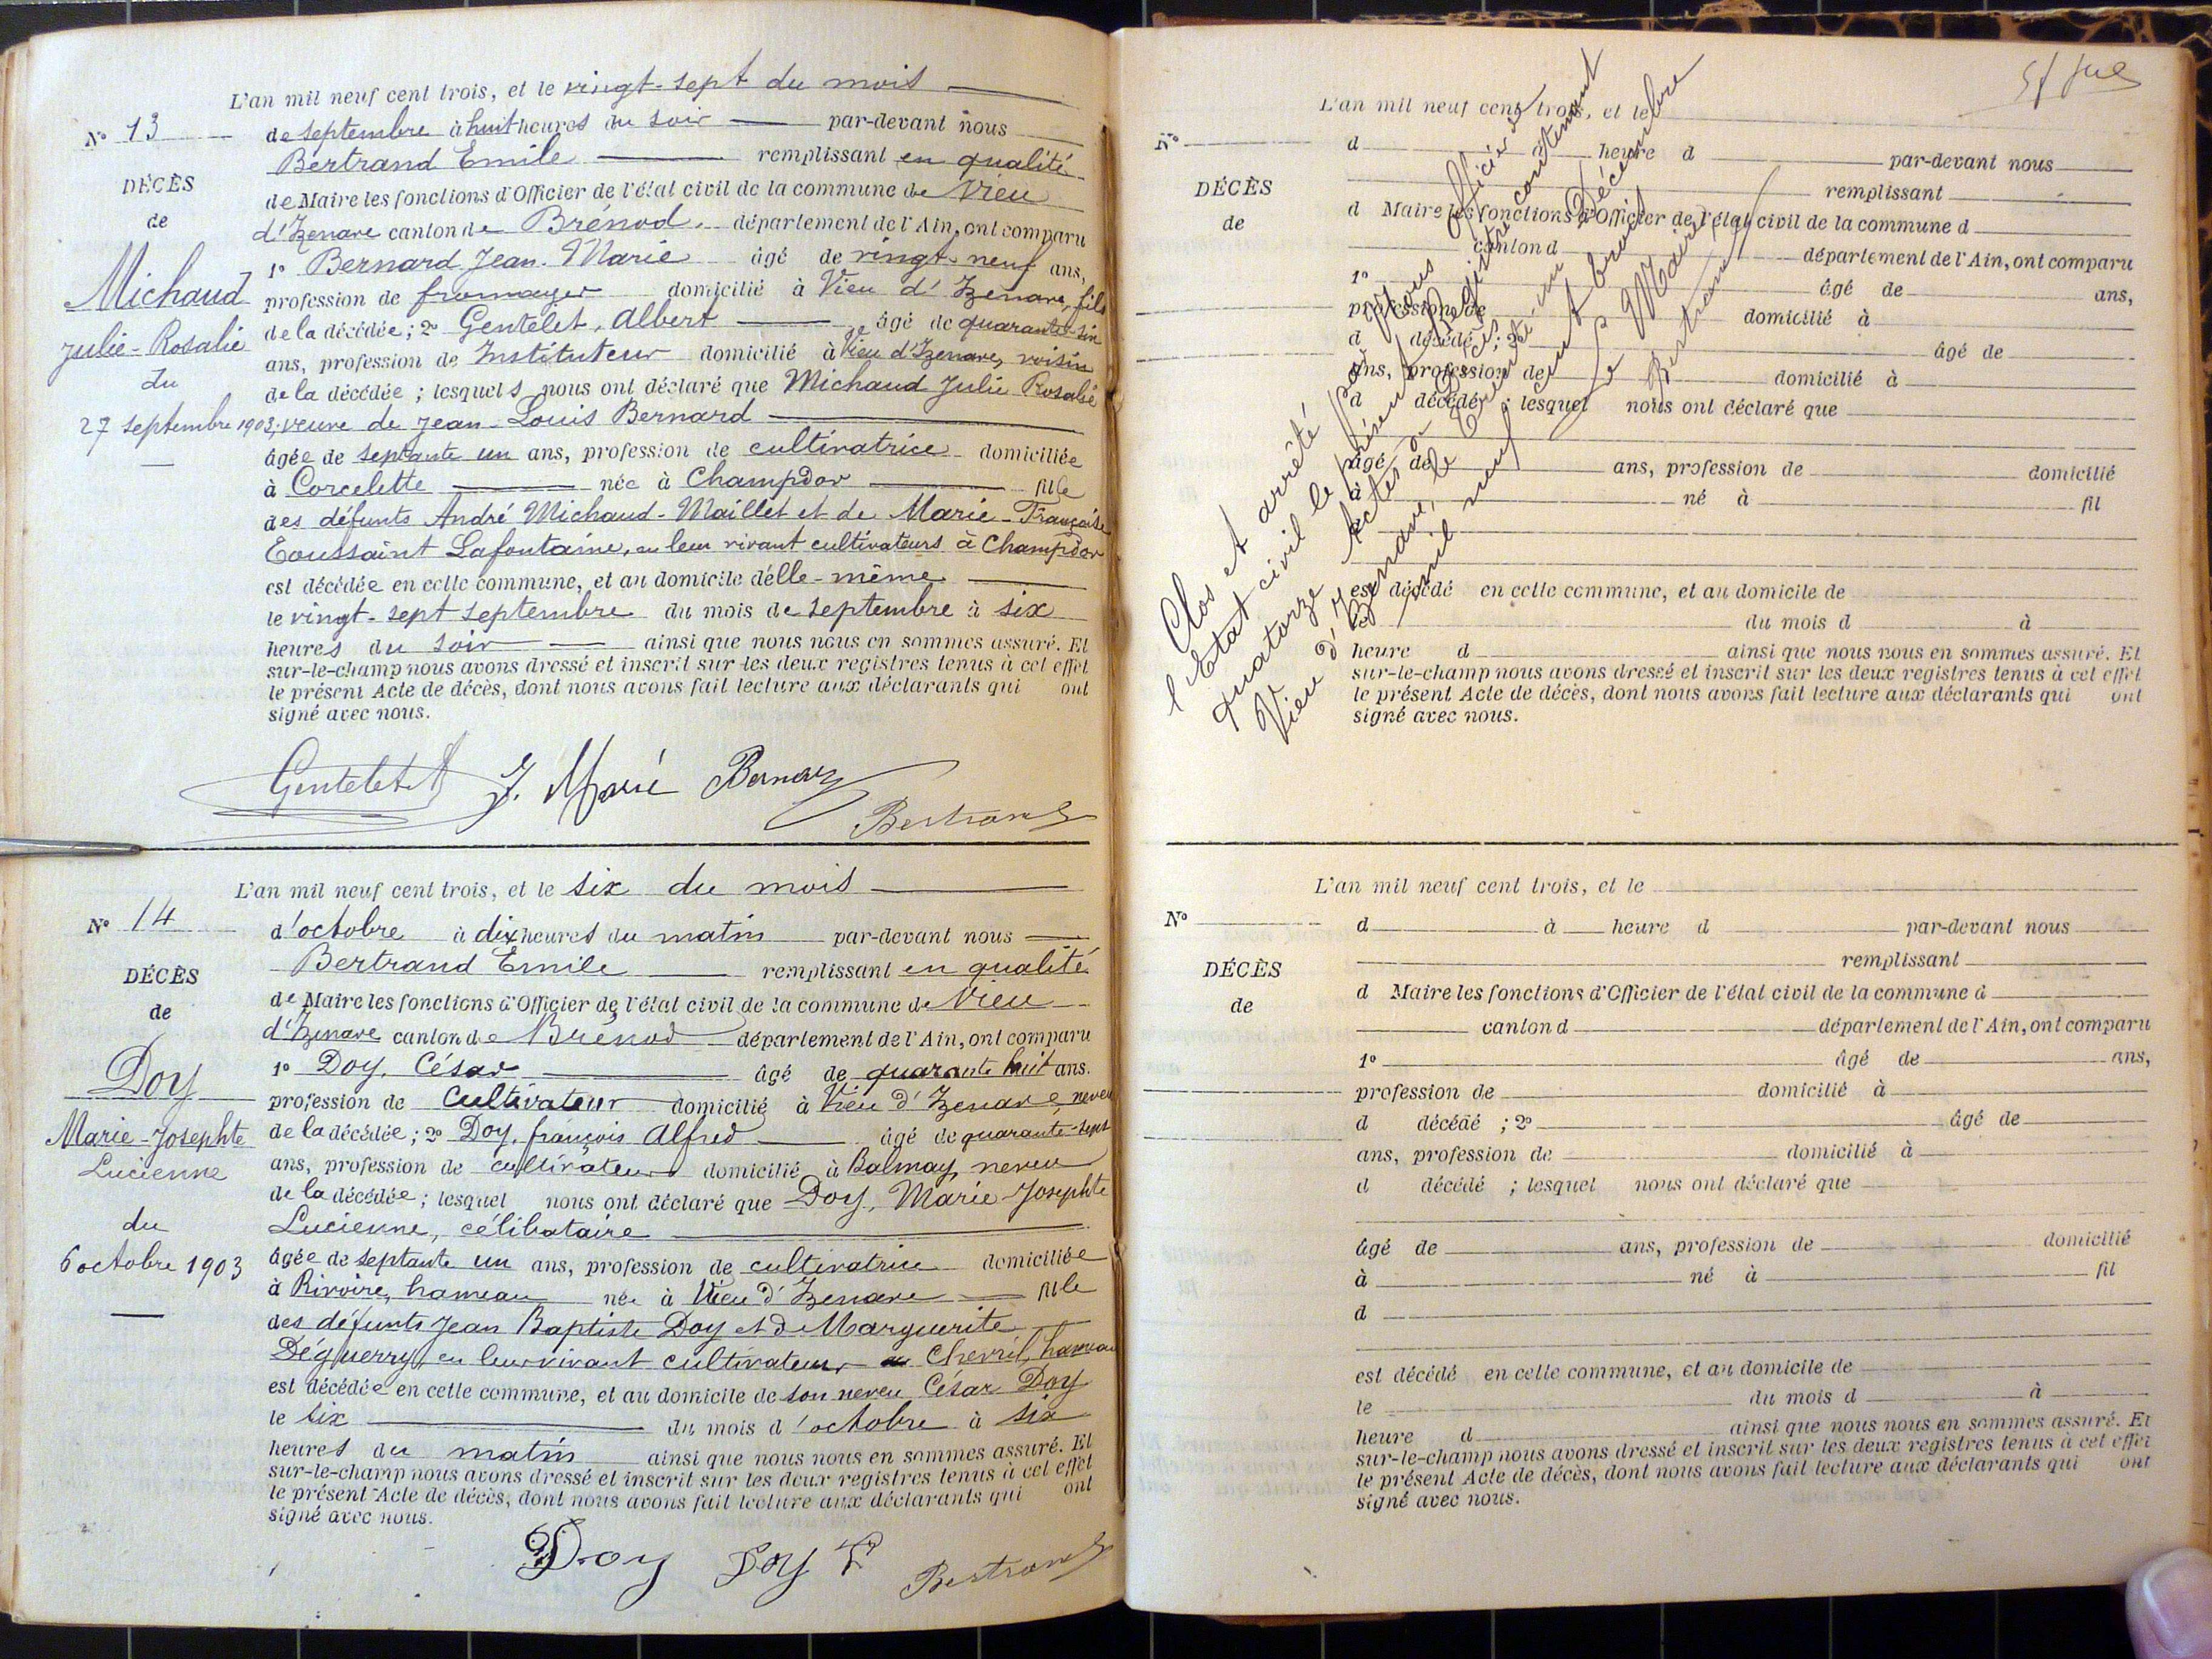 L'an mil neuf cent trois, et le vingt-sept du mois
N° 13
de septembre à huit heures du soir par-devant nous
Bertrand Emile remplissant en qualité
DÉCÈS
de Maire les fonctions d'Officier de l'état civil de la commune de Vieu
de
d'Izenave canton de Brénod, département de l'Ain, ont comparu
1° Bernard Jean-Marie âgé de vingt-neuf ans,
Michaud
profession de fromager domicilié à Vieu d'Izenave, fils
de la décédée ; 2° Gentelet, Albert âgé de quarante-six
Julie-Rosalie
ans, profession de Instituteur domicilié à Vieu d'Izenave, voisin
du
de la décédée ; lesquels nous ont déclaré que Michaud Julie Rosalie
27 septembre 1903
, veuve de Jean-Louis Bernard
âgée de septante un ans, profession de cultivatrice domiciliée
à Corcelette née à Champdor fille
des défunts André Michaud-Maillet et de Marie-Françoise
Toussaint Lafontaine, en leur vivant cultivateurs à Champdor
est décédée en cette commune, et au domicile d'elle-même
le vingt-sept septembre du mois de septembre à six
heures du soir ainsi que nous nous en sommes assuré. Et
sur-le-champ nous avons dressé et inscrit sur les deux registres tenus à cet effet
le présent Acte de décès, dont nous avons fait lecture aux déclarants qui ont
signé avec nous.
Gentelet A J. Marie Bernard
Bertrand
L'an mil neuf cent trois, et le six du mois
N° 14
d'octobre à dix heures du matin par-devant nous
Bertrand Emile remplissant en qualité
DÉCÈS
de Maire les fonctions d'Officier de l'état civil de la commune de Vieu
de
d'Izenave canton de Brénod département de l'Ain, ont comparu
1° Doy, César âgé de quarante huit ans.
Doy
profession de Cultivateur domicilié à Vieu d'Izenave, neveu
Marie-Josephte
de la décédée ; 2° Doy, françois Alfred âgé de quarante-sept
Lucienne
ans, profession de cultivateur domicilié à Balmay, neveu
de la décédée ; lesquel nous ont déclaré que Doy, Marie-Josephte
du
Lucienne, célibataire
6 octobre 1903
âgée de septante un ans, profession de cultivatrice domiciliée
à Rivoire, hameau née à Vieu d'Izenave fille
des défunts Jean Baptiste Doy et de Marguerite
Déguerry, en leur vivant cultivateurs à Chevril, hameau
est décédée en cette commune, et au domicile de son neveu César Doy
le six du mois d'octobre à six
heures du matin ainsi que nous nous en sommes assuré. Et
sur-le-champ nous avons dressé et inscrit sur les deux registres tenus à cet effet
le présent Acte de décès, dont nous avons fait lecture aux déclarants qui ont
signé avec nous.
Doy Doy Bertrand
L'an mil neuf cent trois, et le
N°
d heure d par-devant nous
remplissant
DÉCÈS
d Maire les fonctions d'Officier de l'état civil de la commune d
de
canton d département de l'Ain, ont comparu
1° âgé de ans,
profession de domicilié à
d décédé ; 2° âgé de
ans, profession de domicilié à
d décédé ; lesquel nous ont déclaré que
âgé de ans, profession de domicilié
à né à fil
d
est décédé en cette commune, et au domicile de
le du mois d à
heure d ainsi que nous nous en sommes assuré. Et
sur-le-champ nous avons dressé et inscrit sur les deux registres tenus à cet effet
le présent Acte de décès, dont nous avons fait lecture aux déclarants qui ont
signé avec nous.
Clos et arrêté par Nous officier de
l'Etat civil le présent Registre contenant
quatorze actes de Décès
Vieu d'Izenave, le Trente-un Décembre
mil neuf cent trois
Le Maire
Bertrand
L'an mil neuf cent trois, et le
N°
d à heure d par-devant nous
remplissant
DÉCÈS
d Maire les fonctions d'Officier de l'état civil de la commune d
de
canton d département de l'Ain, ont comparu
1° âgé de ans,
profession de domicilié à
d décédé ; 2° âgé de
ans, profession de domicilié à
d décédé ; lesquel nous ont déclaré que
âgé de ans, profession de domicilié
à né à fil
d
est décédé en cette commune, et au domicile de
le du mois d à
heure d ainsi que nous nous en sommes assuré. Et
sur-le-champ nous avons dressé et inscrit sur les deux registres tenus à cet effet
le présent Acte de décès, dont nous avons fait lecture aux déclarants qui ont
signé avec nous.